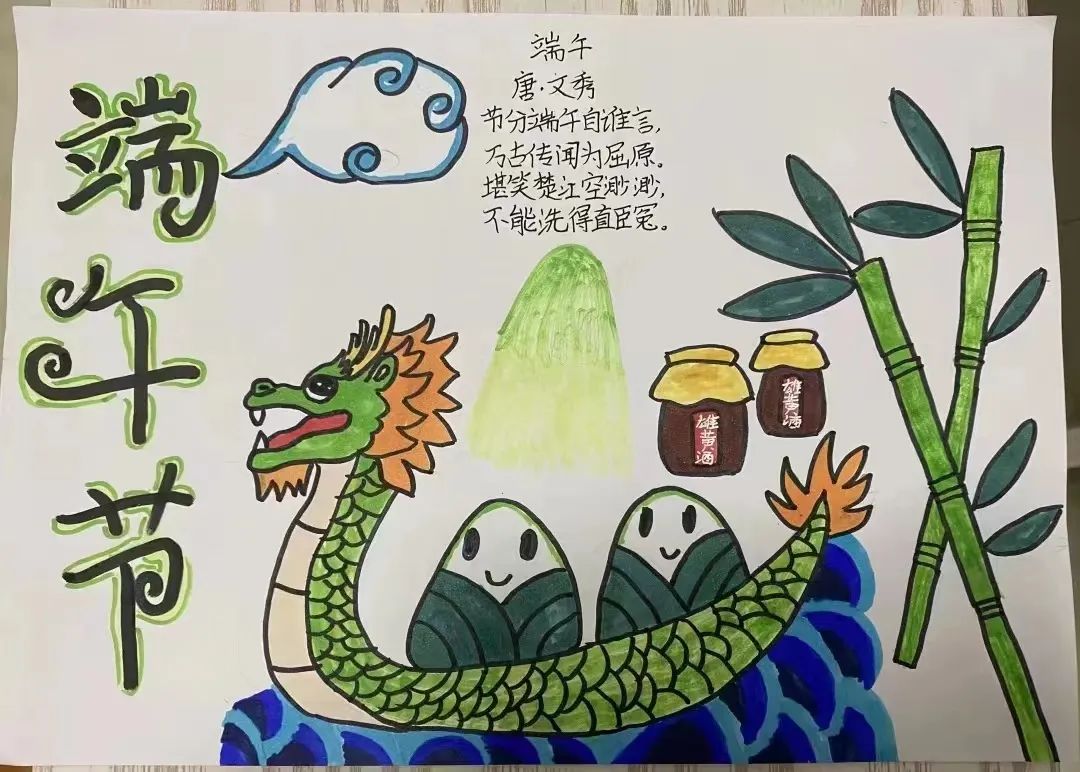 端午节
端午
唐·文秀
节分端午自谁言，
万古传闻为屈原。
堪笑楚江空渺渺，
不能洗得直臣冤。
雄黄酒
雄黄酒